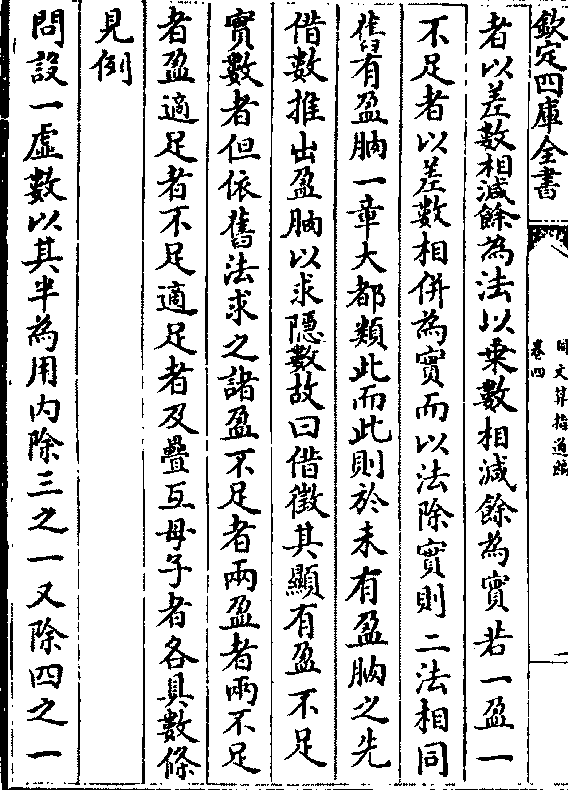 欽定四庫全書
同文算指通編
卷四
者以差數相減餘為法以乗數相減餘為實若一盈一
不足者以差數相併為實而以法除實則二法相同
舊有盈朒一章大都類此而此則於未有盈朒之先
借數推出盈朒以求隱數故曰借徵其顯有盈不足
實數者但依舊法求之諸盈不足者兩盈者兩不足
者盈適足者不足適足者及疊互母子者各具數條
見例
問設一虛數以其半為用内除三之一又除四之一